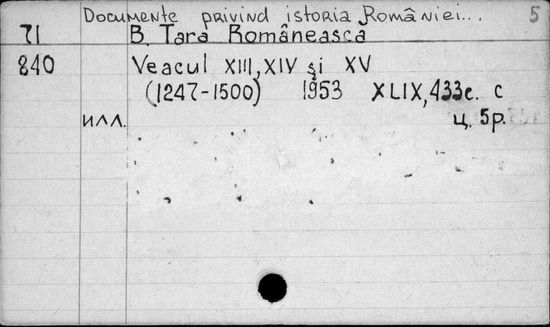 Documente privind istoria României... 5
71 B. Tara Româneasca
840 Veacul XIII, XIV şi XV
(1247-1500) 1953 XLIX, 433с. с
илл. ц. 5р.